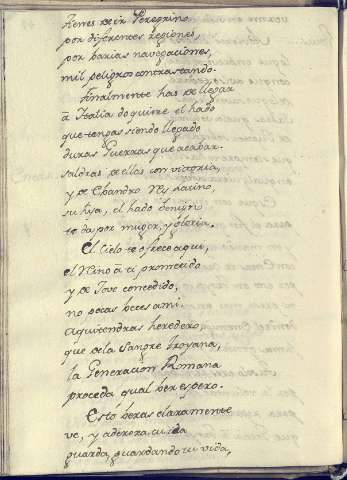 tienes de ir Peregrino
por diferentes regiones,
por barias navegaciones,
mil peligros contrastando.
Finalmente has de llegar
a Italia do quiere el hado
que tengas siendo llegado
duras Guerras que acabar.
Saldras de ellas con victoria,
y de Rey Latino,
su hija, el hado benigno
te da por muger, y gloria.
El Cielo te ofrece aqui,
el Reino a ti prometido
y de Jove concedido,
no pocas beces a mi.
Aqui tendras heredero,
que de la Sangre troyana,
la Generacion Romana
proceda qual ber espero.
Esto beras claramente
ve, y adereza tu ida
guarda, guardando tu vida,